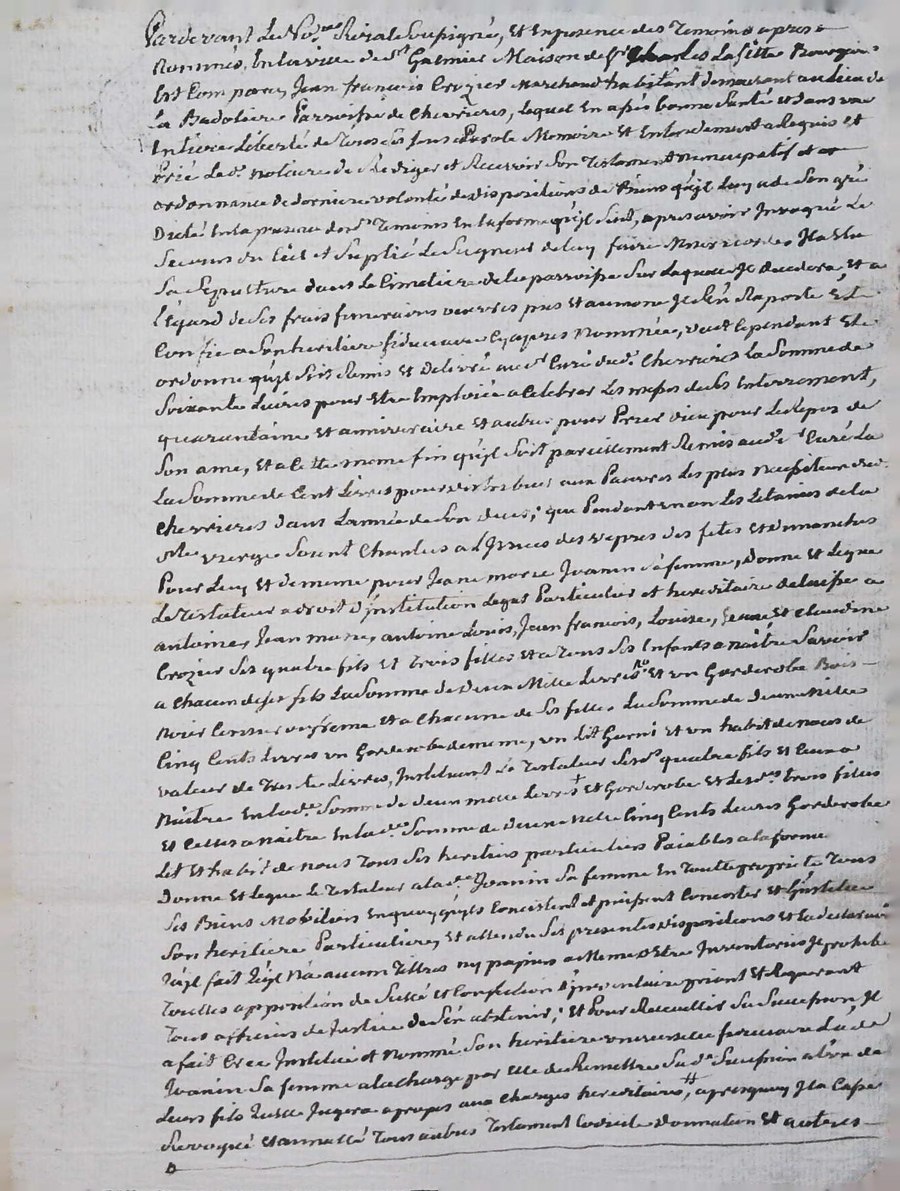 Pardevant Le No.re Roial Soussigné, Et En presence des Temoins apres
Nommés, En la ville de St Galmier Maison de Sr Charles Lafitte Bourgeois
Est Comparu, Jean françois Crozier Marchand habitant demeurant au lieu de
La Badoliere Parroisse de Chevrieres, Lequel En assés bonne Santé et dans une
Entiere Liberté de Tous Ses Sens Parole Memoire Et Entendement a Requis et
Prié Led. notaire de Rediger et Recevoir Son Testament nuncupatif et
ordonnance de derniere volonté et dispositions de Biens qu'il luy a de Son gré
Dicté En la presence des d. Temoins En la forme qu'il Suit, apres avoir Invoqué Le
Secours du Ciel et Suplié Le Seigneur de luy faire Misericorde Il a Elu
Sa Sepulture dans Le Cimetiere de la parroisse Sur Laquelle Il decedera Et a
l'Egard de Ses frais funeraires œuvres pies Et aumone Il S'en Raporte Et Se
Confie a Son heritiere fiduciaire Cy apres Nommée, veut Cependant Et
ordonne qu'il Soit Remis Et Délivré au Sr Curé dud. Chevrieres la Somme de
Soixante Livres pour Etre Emploiée a Celebrer Les messes de Ses Enterrement,
quarantaine Et anniversaire Et autres pour Prier Dieu pour Le Repos de
Son ame, Et a Cette meme fin qu'il Soit pareillement Remis aud. Sr Curé La
La Somme de Cent Livres pour distribuer aux Pauvres Les plus Necessiteux dud.
Chevrieres dans L'année de Son deces; que Pendant un an Les Letanies de la
Ste vierge Soient Chantées a l'Issues des vepres des fetes Et dimanches
Pour Luy Et de meme pour Jeane marie Joanin Sa femme, Donne Et Legue
Le Testateur a droit d'institution Legat Particulier et hereditaire delaisse a
antoine, Jean marie, antoine Louis, Jean françois, Louise, Jeane Et Claudine
Crozier Ses quatre fils Et Trois filles Et a Tous Ses Enfants a naitre Savoir
a Chacun de Ses fils La Somme de Deux Mille Livres Et un Garderobe Bois
Noier Cerisier ou fréne Et a Chacune de Ses filles La Somme de Deux Mille
Cinq Cents Livres un Garderobe de meme, un Lit Garni Et un habit de noces de
valeur de Trente Livres, Instituant Le Testateur Sesd. quatre fils Et Ceux a
Naitre En lad. Somme de deux mille Livres Et Garderobe Et Lesd. trois filles
Et Celles a Naitre En lad. Somme de Deux Mille Cinq Cents Livres Garderobe
Lit Et habit de noces Tous Ses heritiers particuliers Paiables a la forme
Donne Et Legue Le Testateur a lad. Joanin Sa femme En Toute propriété Tous
Ses Biens Mobiliers En quoy qu'ils Consistent Et puissent Consister Et l'institue
Son heritiere Particuliere, Et attendu Ses presentes dispositions Et la declaration
qu'il fait qu'il N'a aucun Tittres ny papiers a Memes d'Etre Inventoriés Il prohibe
Touttes apposition de Scellé Et Confection d'inventaire priant Et Requerant
Tous officiers de Justice de S'en abstenir; Et Pour Recueillir Sa Succession, Il
a fait Créé Institué et Nommé Son heritiere universelle fiduciaire Lad.
Joanin Sa femme a la charge par Elle de Remettre Sad. Succession a l'un de
Leurs fils qu'Elle Jugera a propos aux Charges hereditaires, apres quoy Il a Cassé
Revoqué Et annullé Tous autres Testament Codicile Donnation Et autres